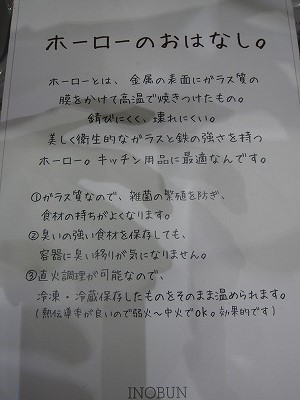 ホーローのおはなし。
ホーローとは、金属の表面にガラス質の
膜をかけて高温で焼きつけたもの。
錆びにくく、壊れにくい。
美しく衛生的なガラスと鉄の強さを持つ
ホーロー。キッチン用品に最適なんです。
①ガラス質なので、雑菌の繁殖を防ぎ、
食材の持ちがよくなります。
②臭いの強い食材を保存しても、
容器に臭い移りが気になりません。
③直火調理が可能なので、
冷凍・冷蔵保存したものをそのまま温められます。
(熱伝導率が良いので弱火〜中火でok。効果的です)
INOBUN